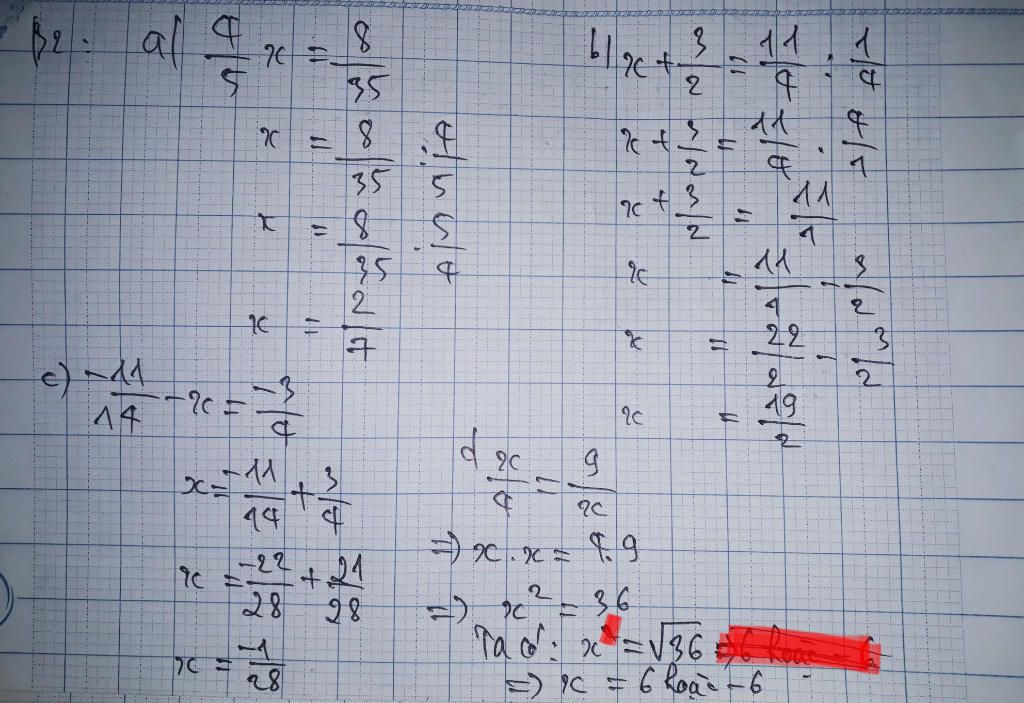 B2: a) 4/5 x = 8/35
x = 8/35 : 4/5
x = 8/35 . 5/4
x = 2/7
b) x + 3/2 = 11/4 : 1/4
x + 3/2 = 11/4 . 4/1
x + 3/2 = 11/1
x = 11/1 - 3/2
x = 22/2 - 3/2
x = 19/2
c) -11/14 - x = -3/4
x = -11/14 + 3/4
x = -22/28 + 21/28
x = -1/28
d x/4 = 9/x
=> x . x = 4.9
=> x² = 36
Ta có: x = √36 => 6 hoặc - 6
=> x = 6 hoặc -6